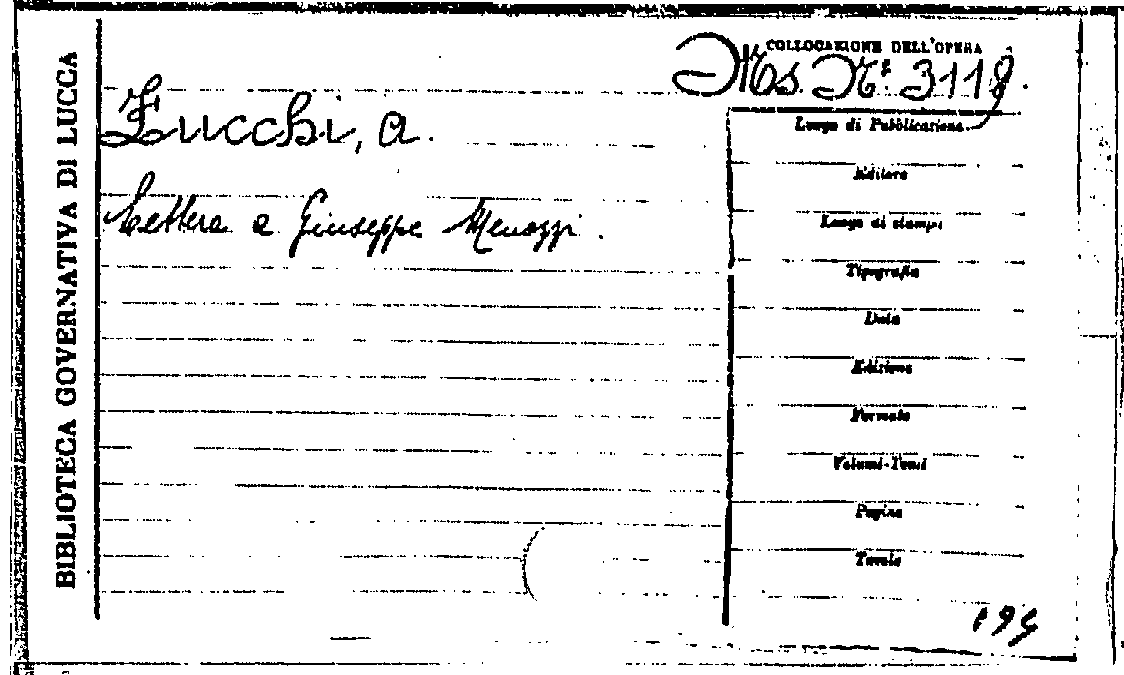 BIBLIOTECA GOVERNATIVA DI LUCCA
COLLOCAZIONE DELL'OPERA
Ms. N.º 3118.
Zucchi, A.
Lettera a Giuseppe Menozzi.
Luogo di Pubblicazione
Editore
Luogo di stampa
Tipografia
Data
Edizione
Formato
Volumi-Tomi
Pagine
Tavole
194